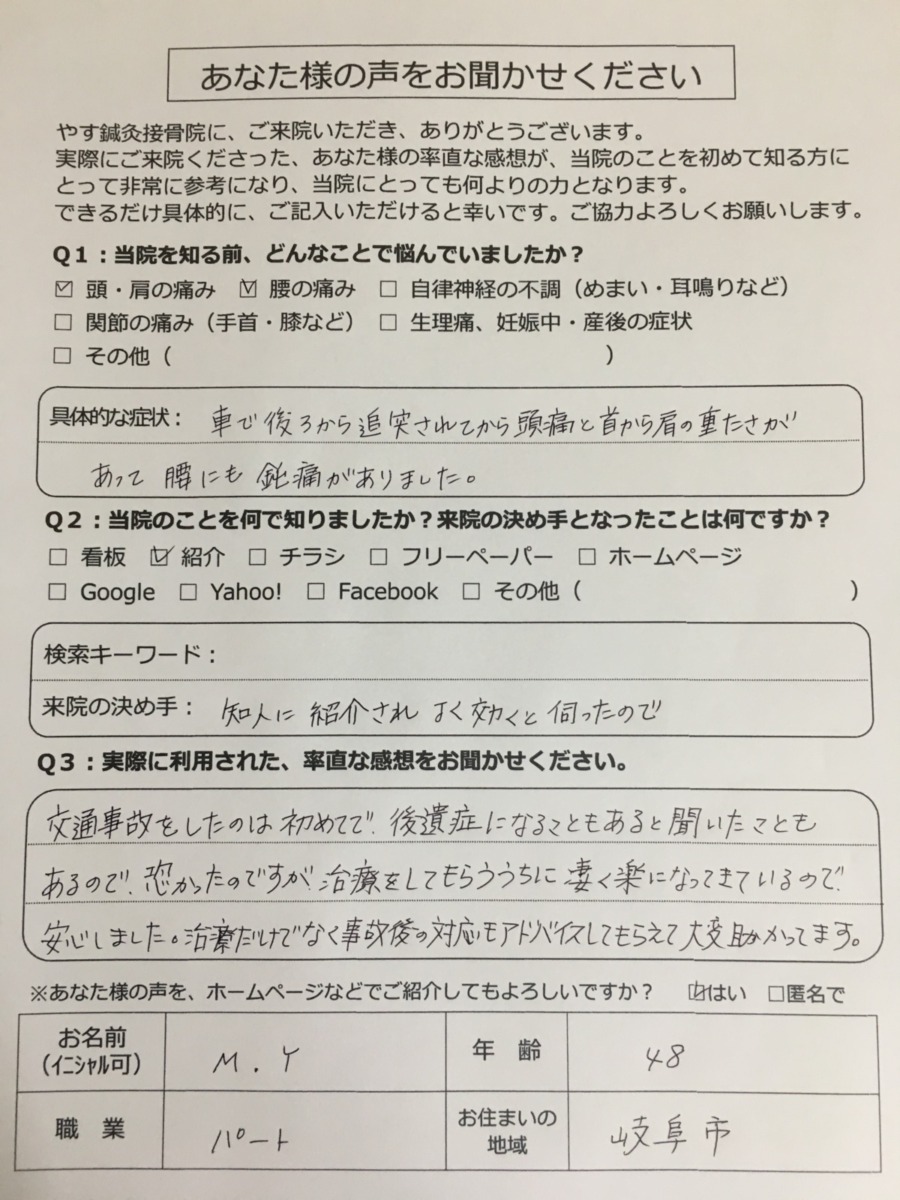 あなた様の声をお聞かせください
やす鍼灸接骨院に、ご来院いただき、ありがとうございます。
実際にご来院くださった、あなた様の率直な感想が、当院のことを初めて知る方に
とって非常に参考になり、当院にとっても何よりの力となります。
できるだけ具体的に、ご記入いただけると幸いです。ご協力よろしくお願いします。
Q1：当院を知る前、どんなことで悩んでいましたか？
☑ 頭・肩の痛み ☑ 腰の痛み □ 自律神経の不調（めまい・耳鳴りなど）
□ 関節の痛み（手首・膝など） □ 生理痛、妊娠中・産後の症状
□ その他（ ）
具体的な症状： 車で後ろから追突されてから頭痛と首から肩の重たさが
あって 腰にも 鈍痛がありました。
Q2：当院のことを何で知りましたか？来院の決め手となったことは何ですか？
□ 看板 ☑ 紹介 □ チラシ □ フリーペーパー □ ホームページ
□ Google □ Yahoo! □ Facebook □ その他（ ）
検索キーワード：
来院の決め手： 知人に 紹介され よく効くと 伺ったので
Q3：実際に利用された、率直な感想をお聞かせください。
交通事故をしたのは 初めてで、後遺症になることもあると聞いたことも
あるので、恐かったのですが、治療をしてもらううちに 凄く楽になってきているので、
安心しました。治療だけでなく事故後の対応もアドバイスしてもらえて 大変助かってます。
※あなた様の声を、ホームページなどでご紹介してもよろしいですか？ ☑はい □匿名で
お名前
（イニシャル可） M.Y 年 齢 48
職 業 パート お住まいの
地域 岐阜市